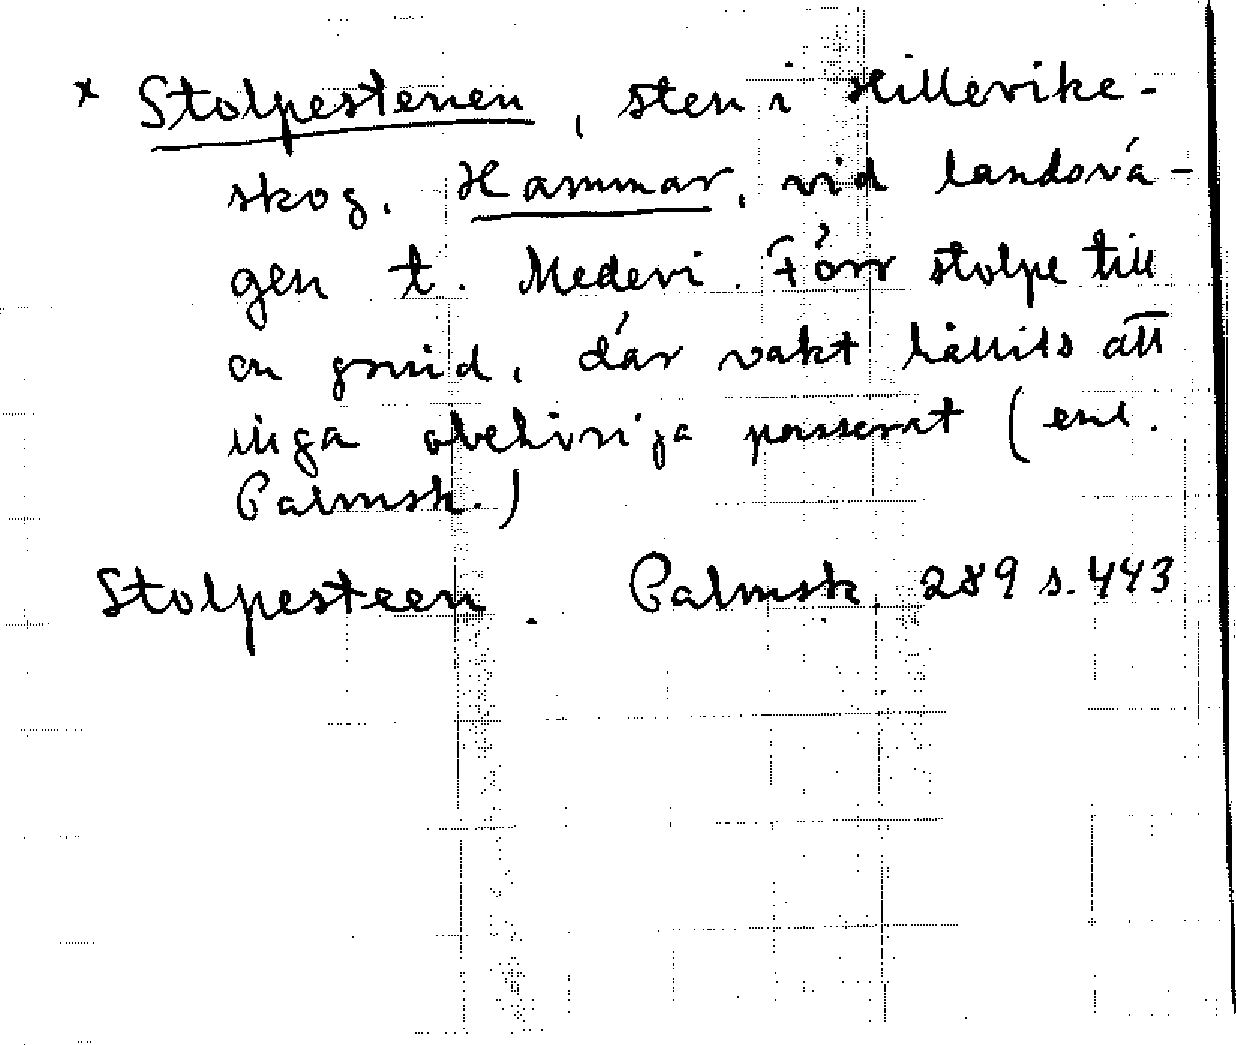 × Stolpestenen, sten i Hillevike-
skog, Hammar, vid landsvä-
gen t. Medevi. Förr stolpe till
en grind, där vakt hållits att
inga obehöriga passerat (enl.
Palmsk.)
Stolpesteen. Palmsk. 289 s. 443